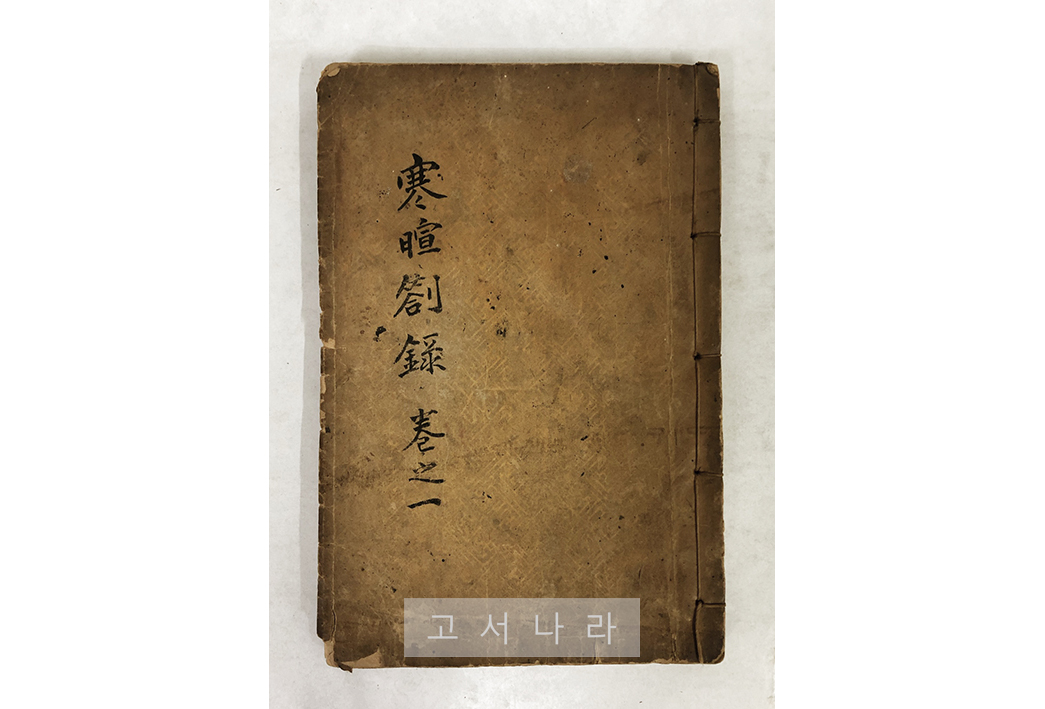 寒暄劄錄 卷之一
고서나라